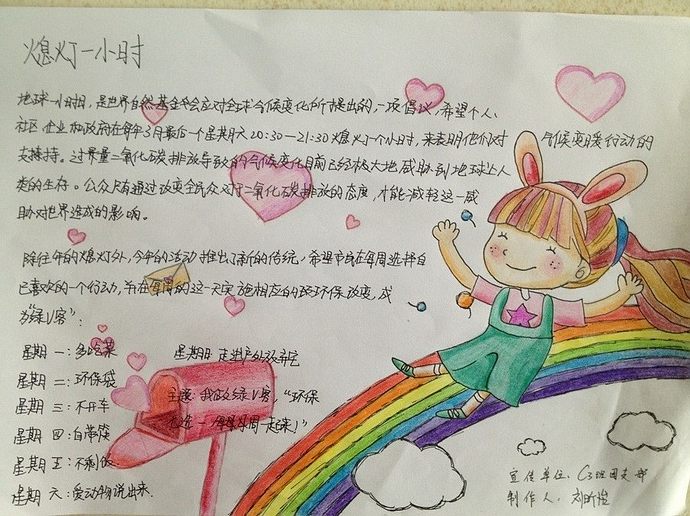 熄灯一小时
地球一小时由，是世界自然基金会应对全球气候变化所提出的一项倡议，希望个人、
社区 企业和政府在每年3月最后一个星期六20:30—21:30熄灯一个小时，来表明他们对 气候变暖行动的
支持。过量二氧化碳排放导致的气候变化目前已经极大地威胁到地球上人
类的生存。公众只有通过改变全民众对于二氧化碳排放的态度，才能减轻这一威
胁对世界造成的影响。
除往年的熄灯外，今年的活动推出了新的传统，希望市民在每周选择自
己喜欢的一个行动，并在每周的这一天实施相应的环保改变，成
为“绿V客”：
星期一：多吃菜
星期二：环保袋
星期三：不开车
星期四：自带筷
星期五：不剩饭
星期六：爱动物说出来
星期日：走进户外
主题：我做绿V客，“环保
一起来！”
宣传单位：C3班团支部
制作人：刘昕